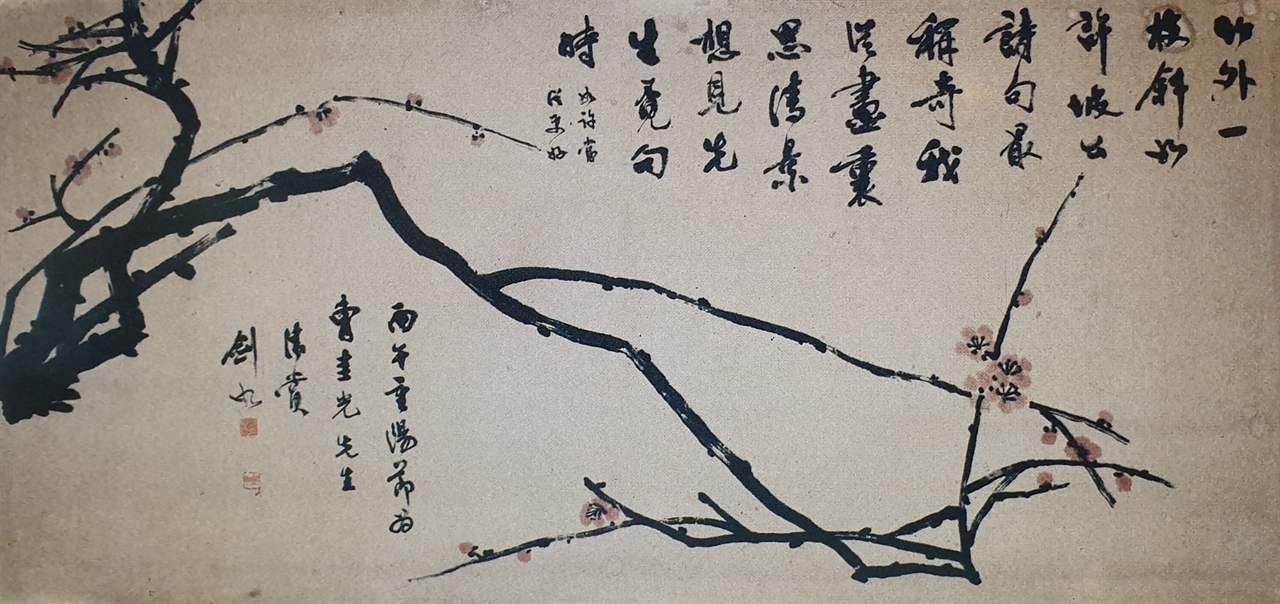 竹外一
枝斜如
許坡公
詩句最
稱奇我
從畫裏
思清景
想見先
生覓句
時
如許當
作更好
丙午重陽節為
曹圭光先生
清賞
劍